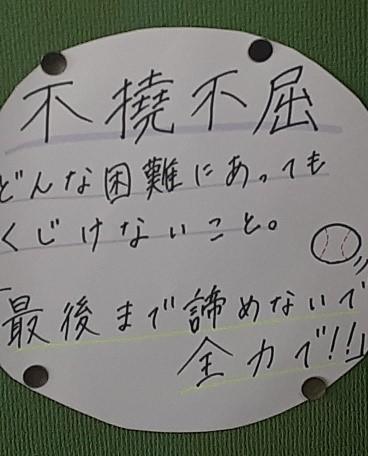 不撓不屈
どんな困難にあっても
くじけないこと。
「最後まで諦めないで
全力で!!」